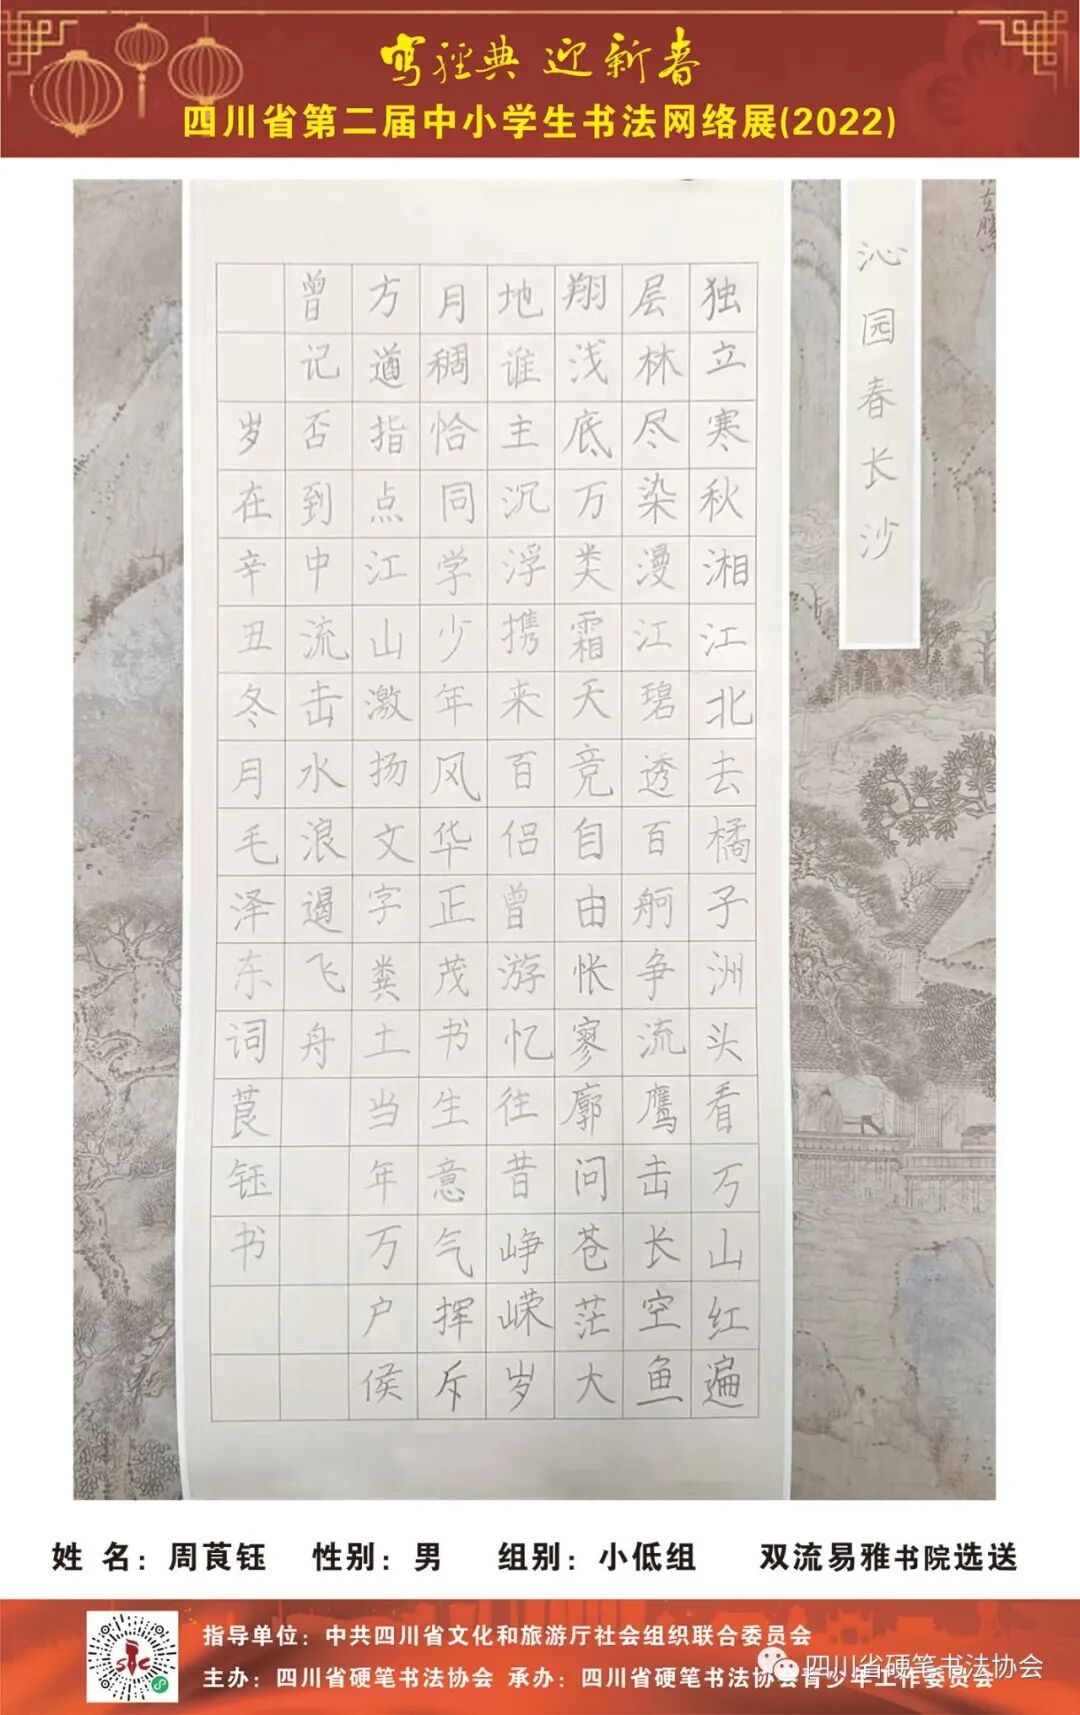 写经典 迎新春
四川省第二届中小学生书法网络展(2022)
沁园春长沙
独立寒秋湘江北去橘子洲头看万山红遍
层林尽染漫江碧透百舸争流鹰击长空鱼
翔浅底万类霜天竞自由怅寥廓问苍茫大
地谁主沉浮携来百侣曾游忆往昔峥嵘岁
月稠恰同学少年风华正茂书生意气挥斥
方遒指点江山激扬文字粪土当年万户侯
曾记否到中流击水浪遏飞舟
岁在辛丑冬月毛泽东词茛钰书
姓 名：周茛钰 性别：男 组别：小低组 双流易雅书院选送
指导单位：中共四川省文化和旅游厅社会组织联合委员会
主办：四川省硬笔书法协会 承办：四川省硬笔书法协会青少年工作委员会
四川省硬笔书法协会